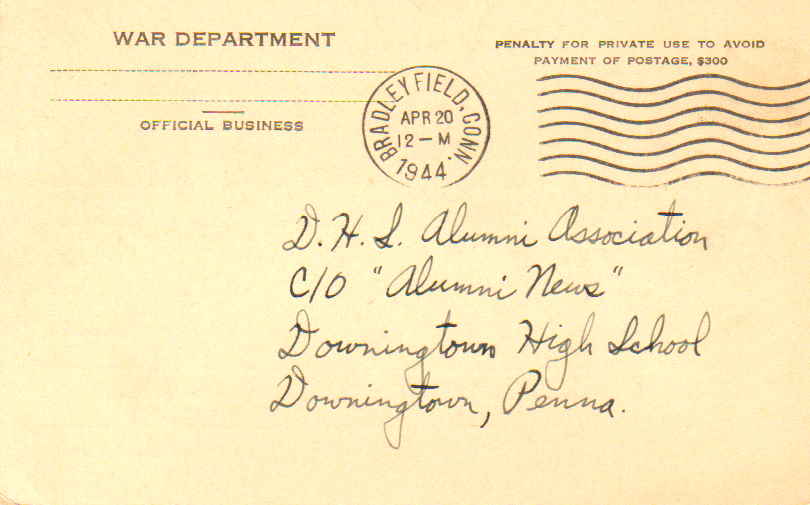 WAR DEPARTMENT
OFFICIAL BUSINESS
PENALTY FOR PRIVATE USE TO AVOID
PAYMENT OF POSTAGE, $300
BRADLEY FIELD, CONN.
APR 20
12 – M
1944
D. H. S. Alumni Association
C/O "Alumni News"
Downingtown High School
Downingtown, Penna.